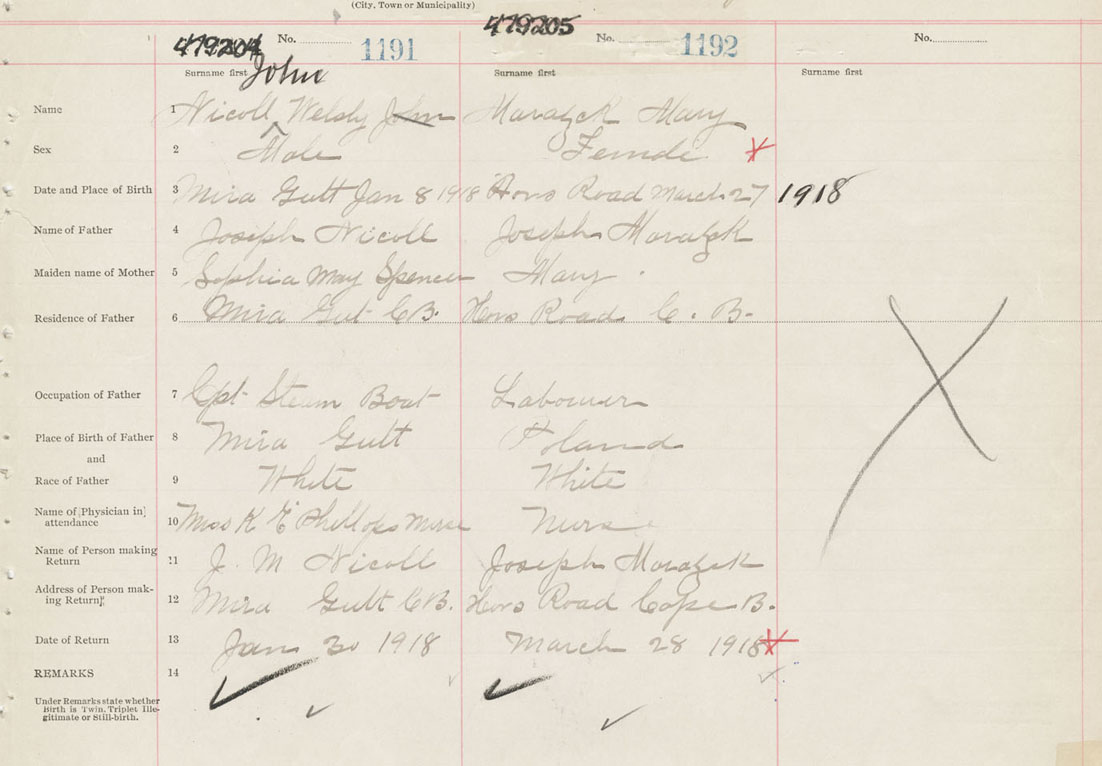 (City, Town or Municipality)
479204 No. 1191 479205 No. 1192 No.
Surname first John Surname first Surname first
Name 1 Nicoll, Welsly John Mary
Sex 2 Male Female
Date and Place of Birth 3 Mira Gutt Jan 8 1918 Road March 27 1918
Name of Father 4 Joseph Nicoll Joseph
Maiden name of Mother 5 Sophia May Spencer Mary
Residence of Father 6 Mira Gut C.B. Road C. B.
Occupation of Father 7 Cpt Steam Boat Labourer
Place of Birth of Father 8 Mira Gutt Poland
and
Race of Father 9 White White
Name of Physician in
attendance 10 Miss K E Nurse
Name of Person making
Return 11 J. M Nicoll Joseph
Address of Person mak-
ing Return 12 Mira Gutt C.B. Road Cape B.
Date of Return 13 Jan 30 1918 March 28 1918
REMARKS 14
Under Remarks state whether
Birth is Twin, Triplet Ille-
gitimate or Still-birth.